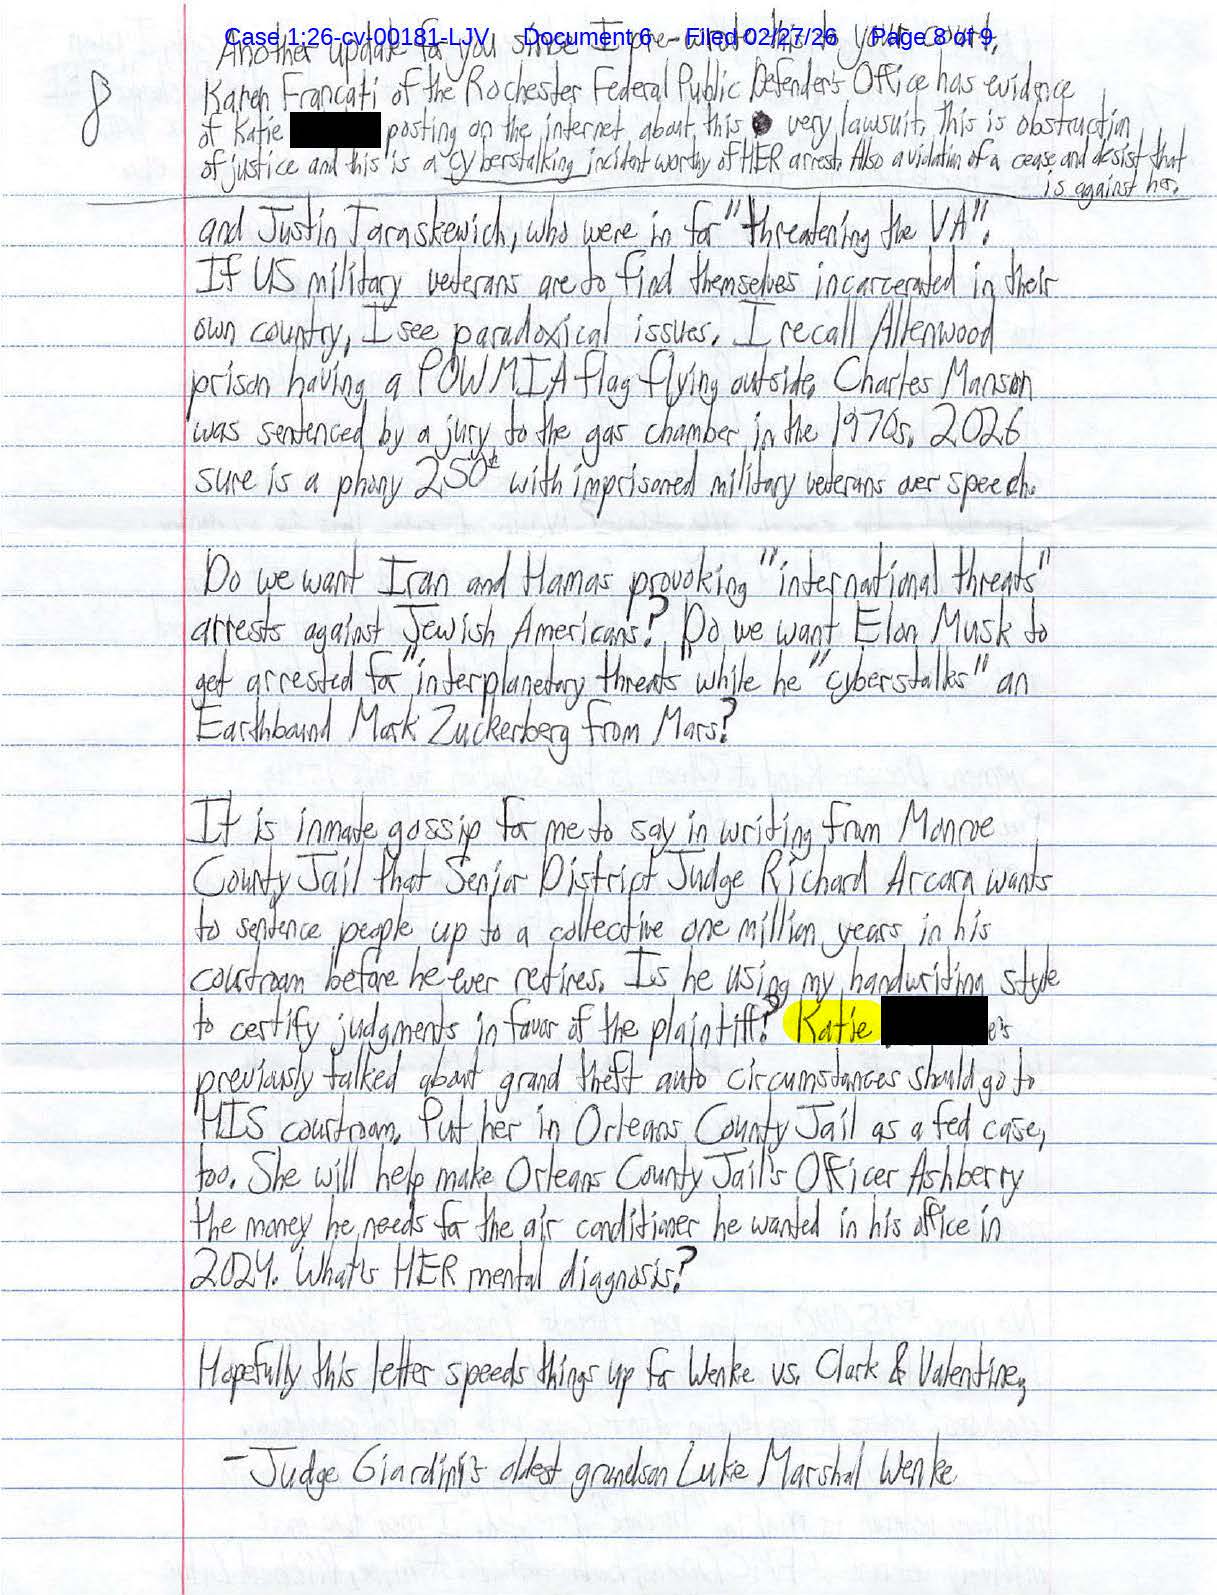 Case 1:26-cv-00181-LJV Document 6 Filed 02/27/26 Page 8 of 9
Another update for you since I pre-wrote this in your court.
8
Karen Francati of the Rochester Federal Public Defender's Office has evidence
of Katie posting on the internet about this very lawsuit. This is obstruction
of justice and this is a cyberstalking incident worthy of HER arrest. Also a violation of a cease and desist that
is against her.
and Justin Taraskewich, who were in for "threatening the VA".
If US military veterans are to find themselves incarcerated in their
own country, I see paradoxical issues. I recall Allenwood
prison having a POW MIA flag flying outside. Charles Manson
was sentenced by a jury to the gas chamber in the 1970s. 2026
sure is a phony 250th with imprisoned military veterans over speech.
Do we want Iran and Hamas provoking "international threats"
arrests against Jewish Americans? Do we want Elon Musk to
get arrested for "interplanetary threats" while he "cyberstalks" an
Earthbound Mark Zuckerberg from Mars?
It is inmate gossip for me to say in writing from Monroe
County Jail that Senior District Judge Richard Arcara wants
to sentence people up to a collective one million years in his
courtroom before he ever retires. Is he using my handwriting style
to certify judgments in favor of the plaintiff? Katie e's
previously talked about grand theft auto circumstances should go to
HIS courtroom. Put her in Orleans County Jail as a fed case,
too. She will help make Orleans County Jail's Officer Ashberry
the money he needs for the air conditioner he wanted in his office in
2024. What's HER mental diagnosis?
Hopefully this letter speeds things up for Wenke vs. Clark & Valentine,
-Judge Giardini's oldest grandson Luke Marshal Wenke